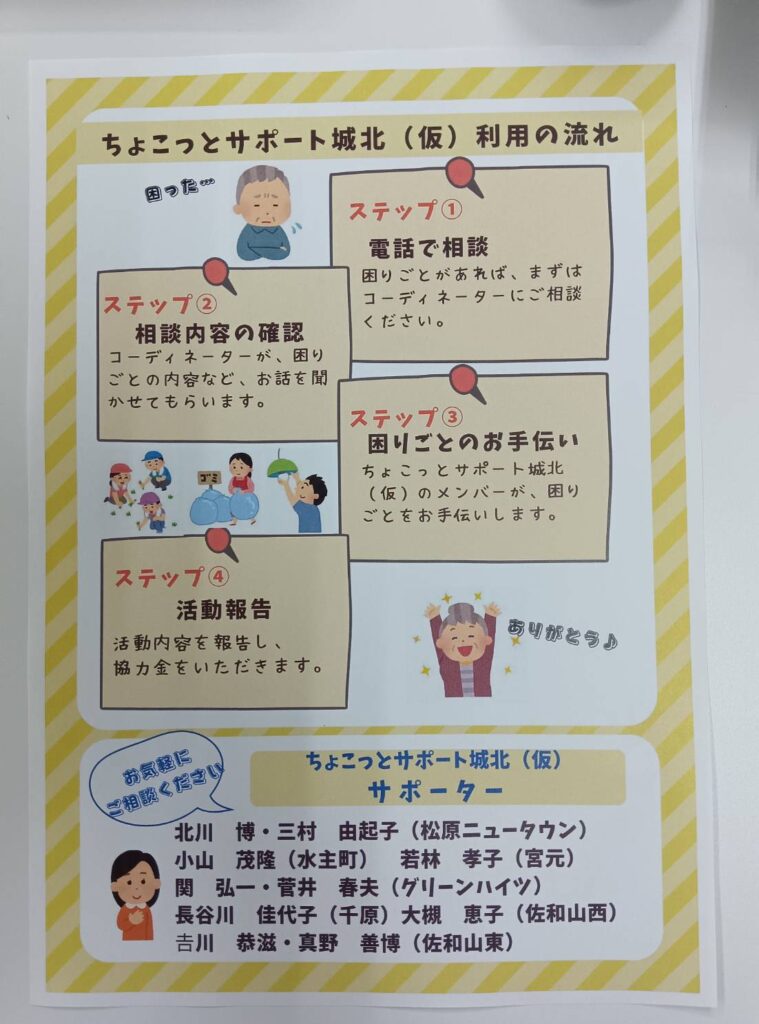 ちょこっとサポート城北（仮）利用の流れ
困った…
ステップ①
電話で相談
困りごとがあれば、まずは
コーディネーターにご相談
ください。
ステップ②
相談内容の確認
コーディネーターが、困り
ごとの内容など、お話を聞
かせてもらいます。
ステップ③
困りごとのお手伝い
ちょこっとサポート城北
（仮）のメンバーが、困り
ごとをお手伝いします。
ゴミ
ステップ④
活動報告
活動内容を報告し、
協力金をいただきます。
ありがとう♪
お気軽に
ご相談ください
ちょこっとサポート城北（仮）
サポーター
北川　博・三村　由起子（松原ニュータウン）
小山　茂隆（水主町）　若林　孝子（宮元）
関　弘一・菅井　春夫（グリーンハイツ）
長谷川　佳代子（千原）大槻　恵子（佐和山西）
𠮷川　恭滋・真野　善博（佐和山東）